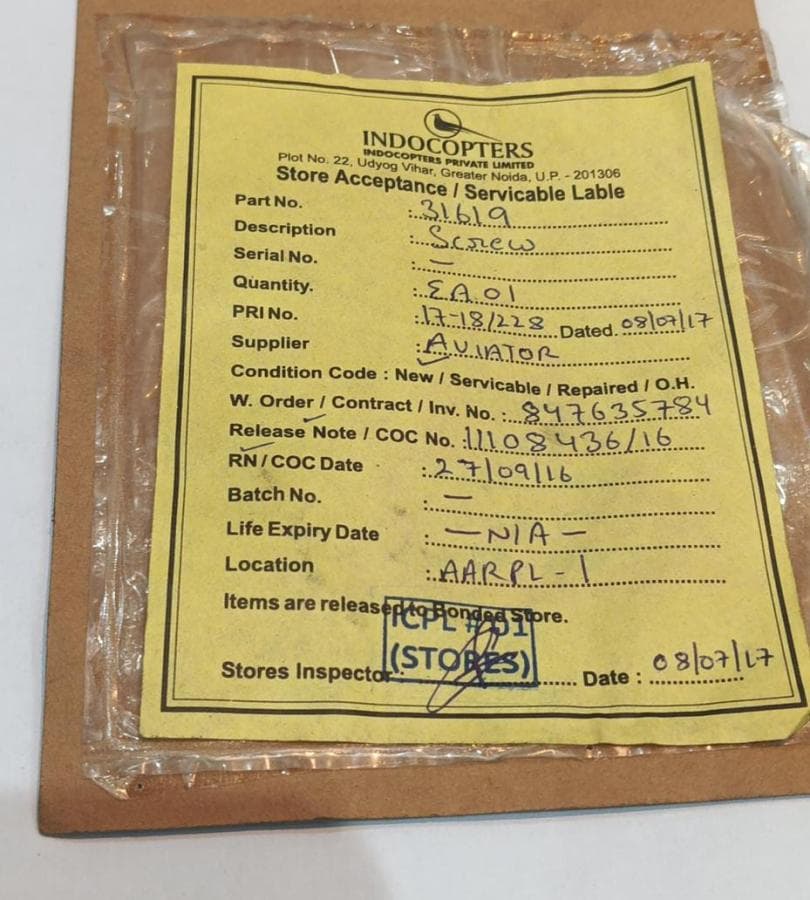 INDOCOPTERS
INDOCOPTERS PRIVATE LIMITED
Plot No. 22, Udyog Vihar, Greater Noida, U.P. - 201306
Store Acceptance / Servicable Lable
Part No. : 31619
Description : Screw
Serial No. : —
Quantity. : EA 01
PRI No. : 17-18/228 Dated. 08/07/17
Supplier : AVIATOR
Condition Code : New / Servicable / Repaired / O.H.
W. Order / Contract / Inv. No. : 847635784
Release Note / COC No. : 11108436/16
RN / COC Date : 27/09/16
Batch No. : —
Life Expiry Date : — N/A —
Location : AARPL - 1
Items are released to Bonded Store.
ICPL #01
(STORES)
Stores Inspector : Date : 08/07/17